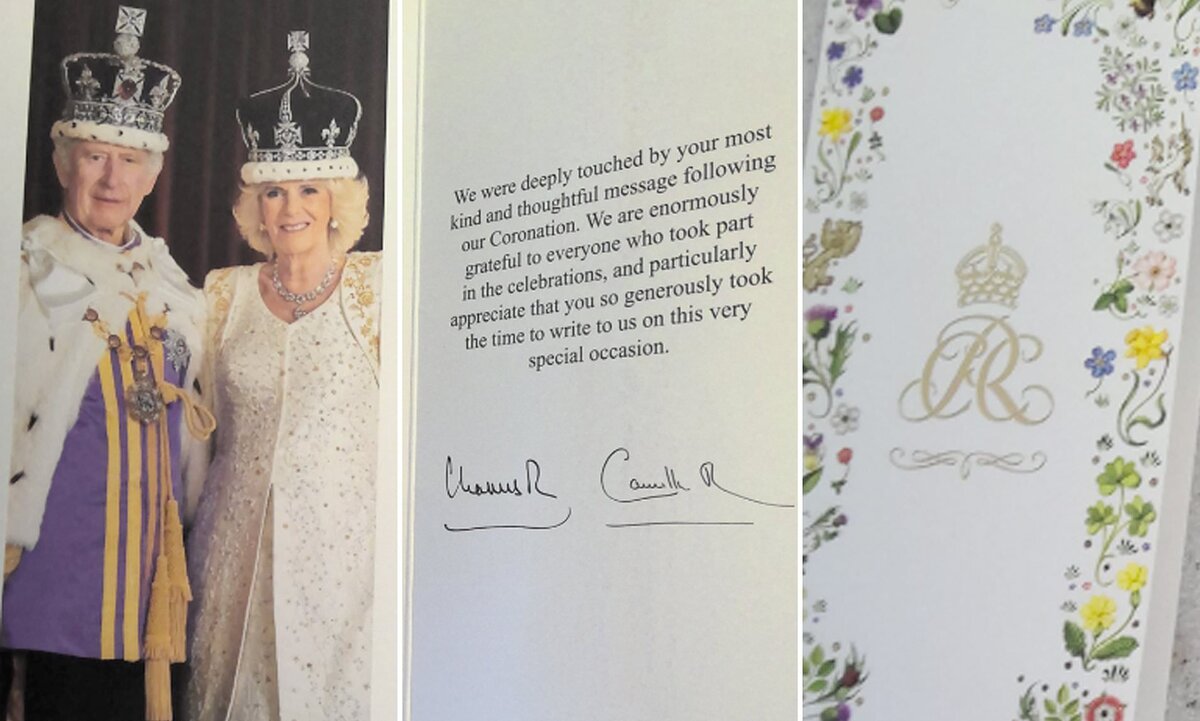 We were deeply touched by your most
kind and thoughtful message following
our Coronation. We are enormously
grateful to everyone who took part
in the celebrations, and particularly
appreciate that you so generously took
the time to write to us on this very
special occasion.
Charles R
Camilla R